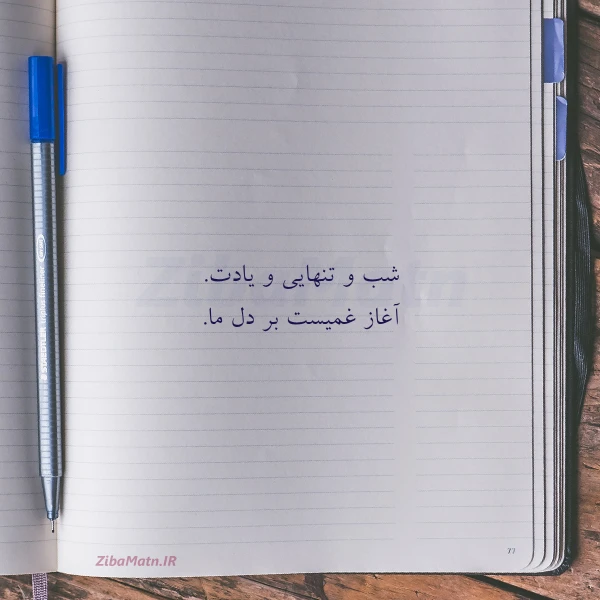 شب و تنهایی و یادت.
آغاز غمیست بر دل ما.
ZibaMatn.IR
77